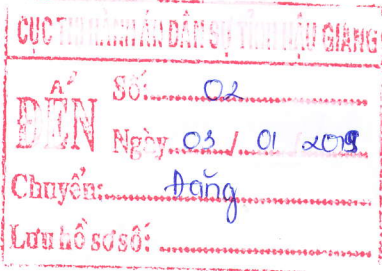 CỤC THI HÀNH ÁN DÂN SỰ TỈNH HẬU GIANG
ĐẾN
Số: 02
Ngày 03 / 01 2019
Chuyển: Đăng
Lưu hồ sơ số: